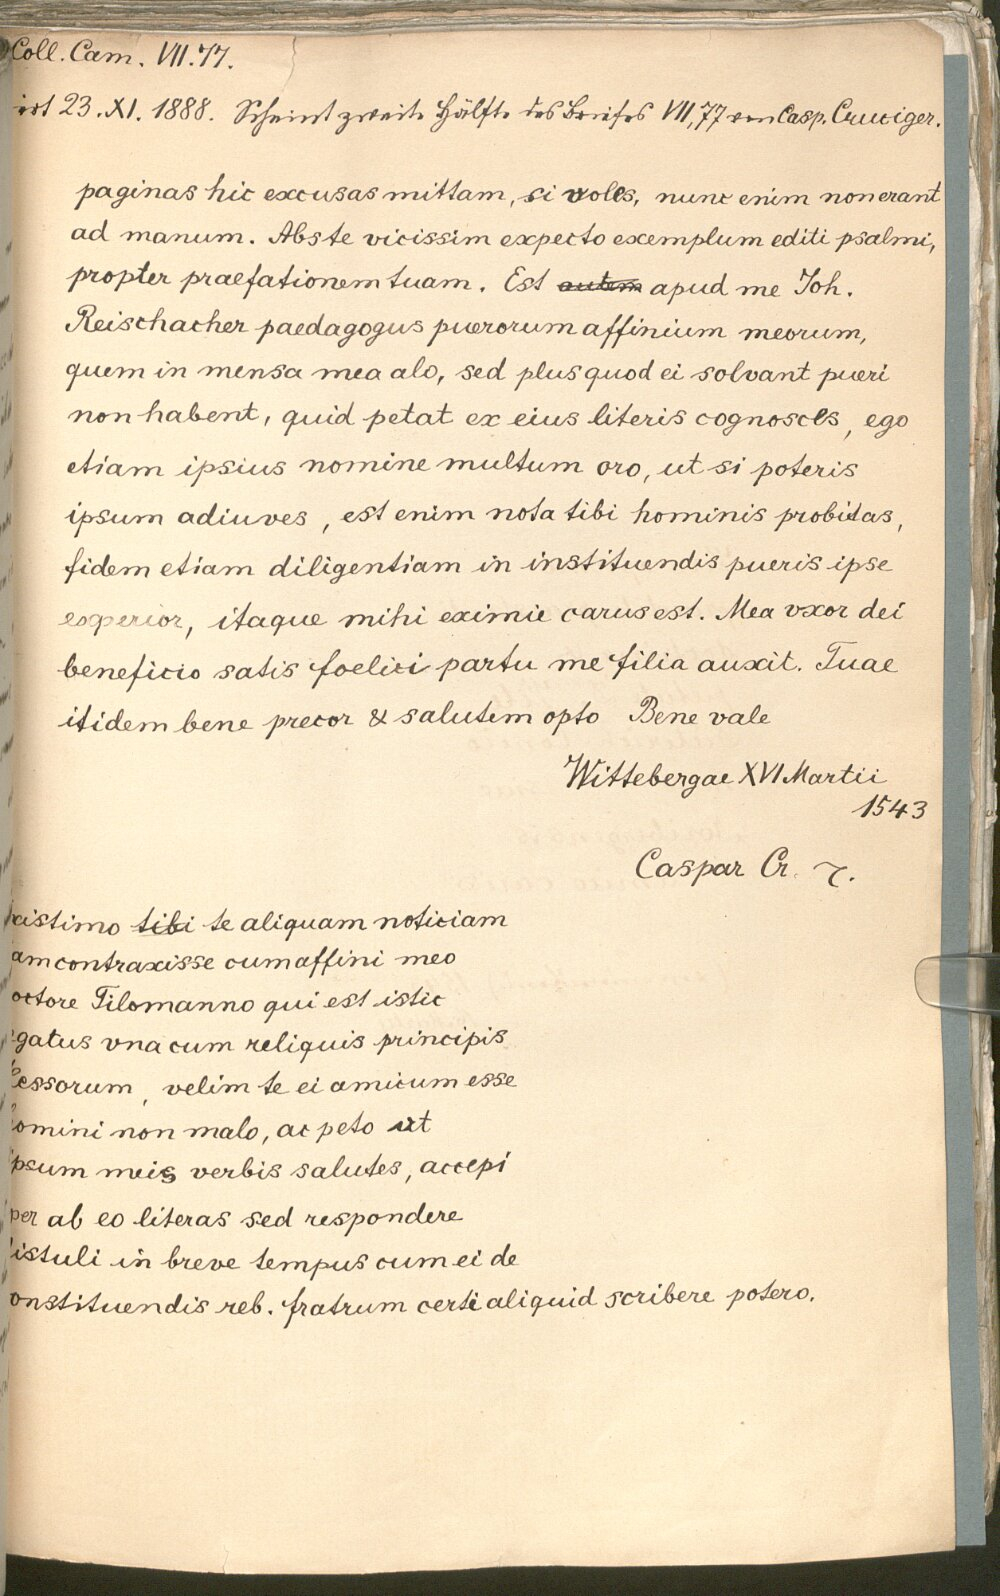 Coll. Cam. VII. 77.
irt 23. XI. 1888. Scheint zweite Hälfte des Briefes VII, 77 von Casp. Cruciger.
paginas hic excusas mittam, si voles, nunc enim non erant
ad manum. Abs te vicissim expecto exemplum editi psalmi,
propter praefationem tuam. Est autem apud me Joh.
Reischacher paedagogus puerorum affinium meorum,
quem in mensa mea alo, sed plus quod ei solvant pueri
non habent, quid petat ex eius literis cognosces, ego
etiam ipsius nomine multum oro, ut si poteris
ipsum adiuves, est enim nota tibi hominis probitas,
fidem etiam diligentiam in instituendis pueris ipse
experior, itaque mihi eximie carus est. Mea vxor dei
beneficio satis foelici partu me filia auxit. Tuae
itidem bene precor & salutem opto Bene vale
Wittebergae XVI Martii
1543
Caspar Cr.
xistimo tibi te aliquam noticiam
am contraxisse cum affini meo
octore Tilomanno qui est istic
gatus vna cum reliquis principis
essorum, velim te ei amicum esse
omini non malo, ac peto ut
psum meis verbis salutes, accepi
per ab eo literas sed respondere
istuli in breve tempus cum ei de
onstituendis reb. fratrum certi aliquid scribere potero.